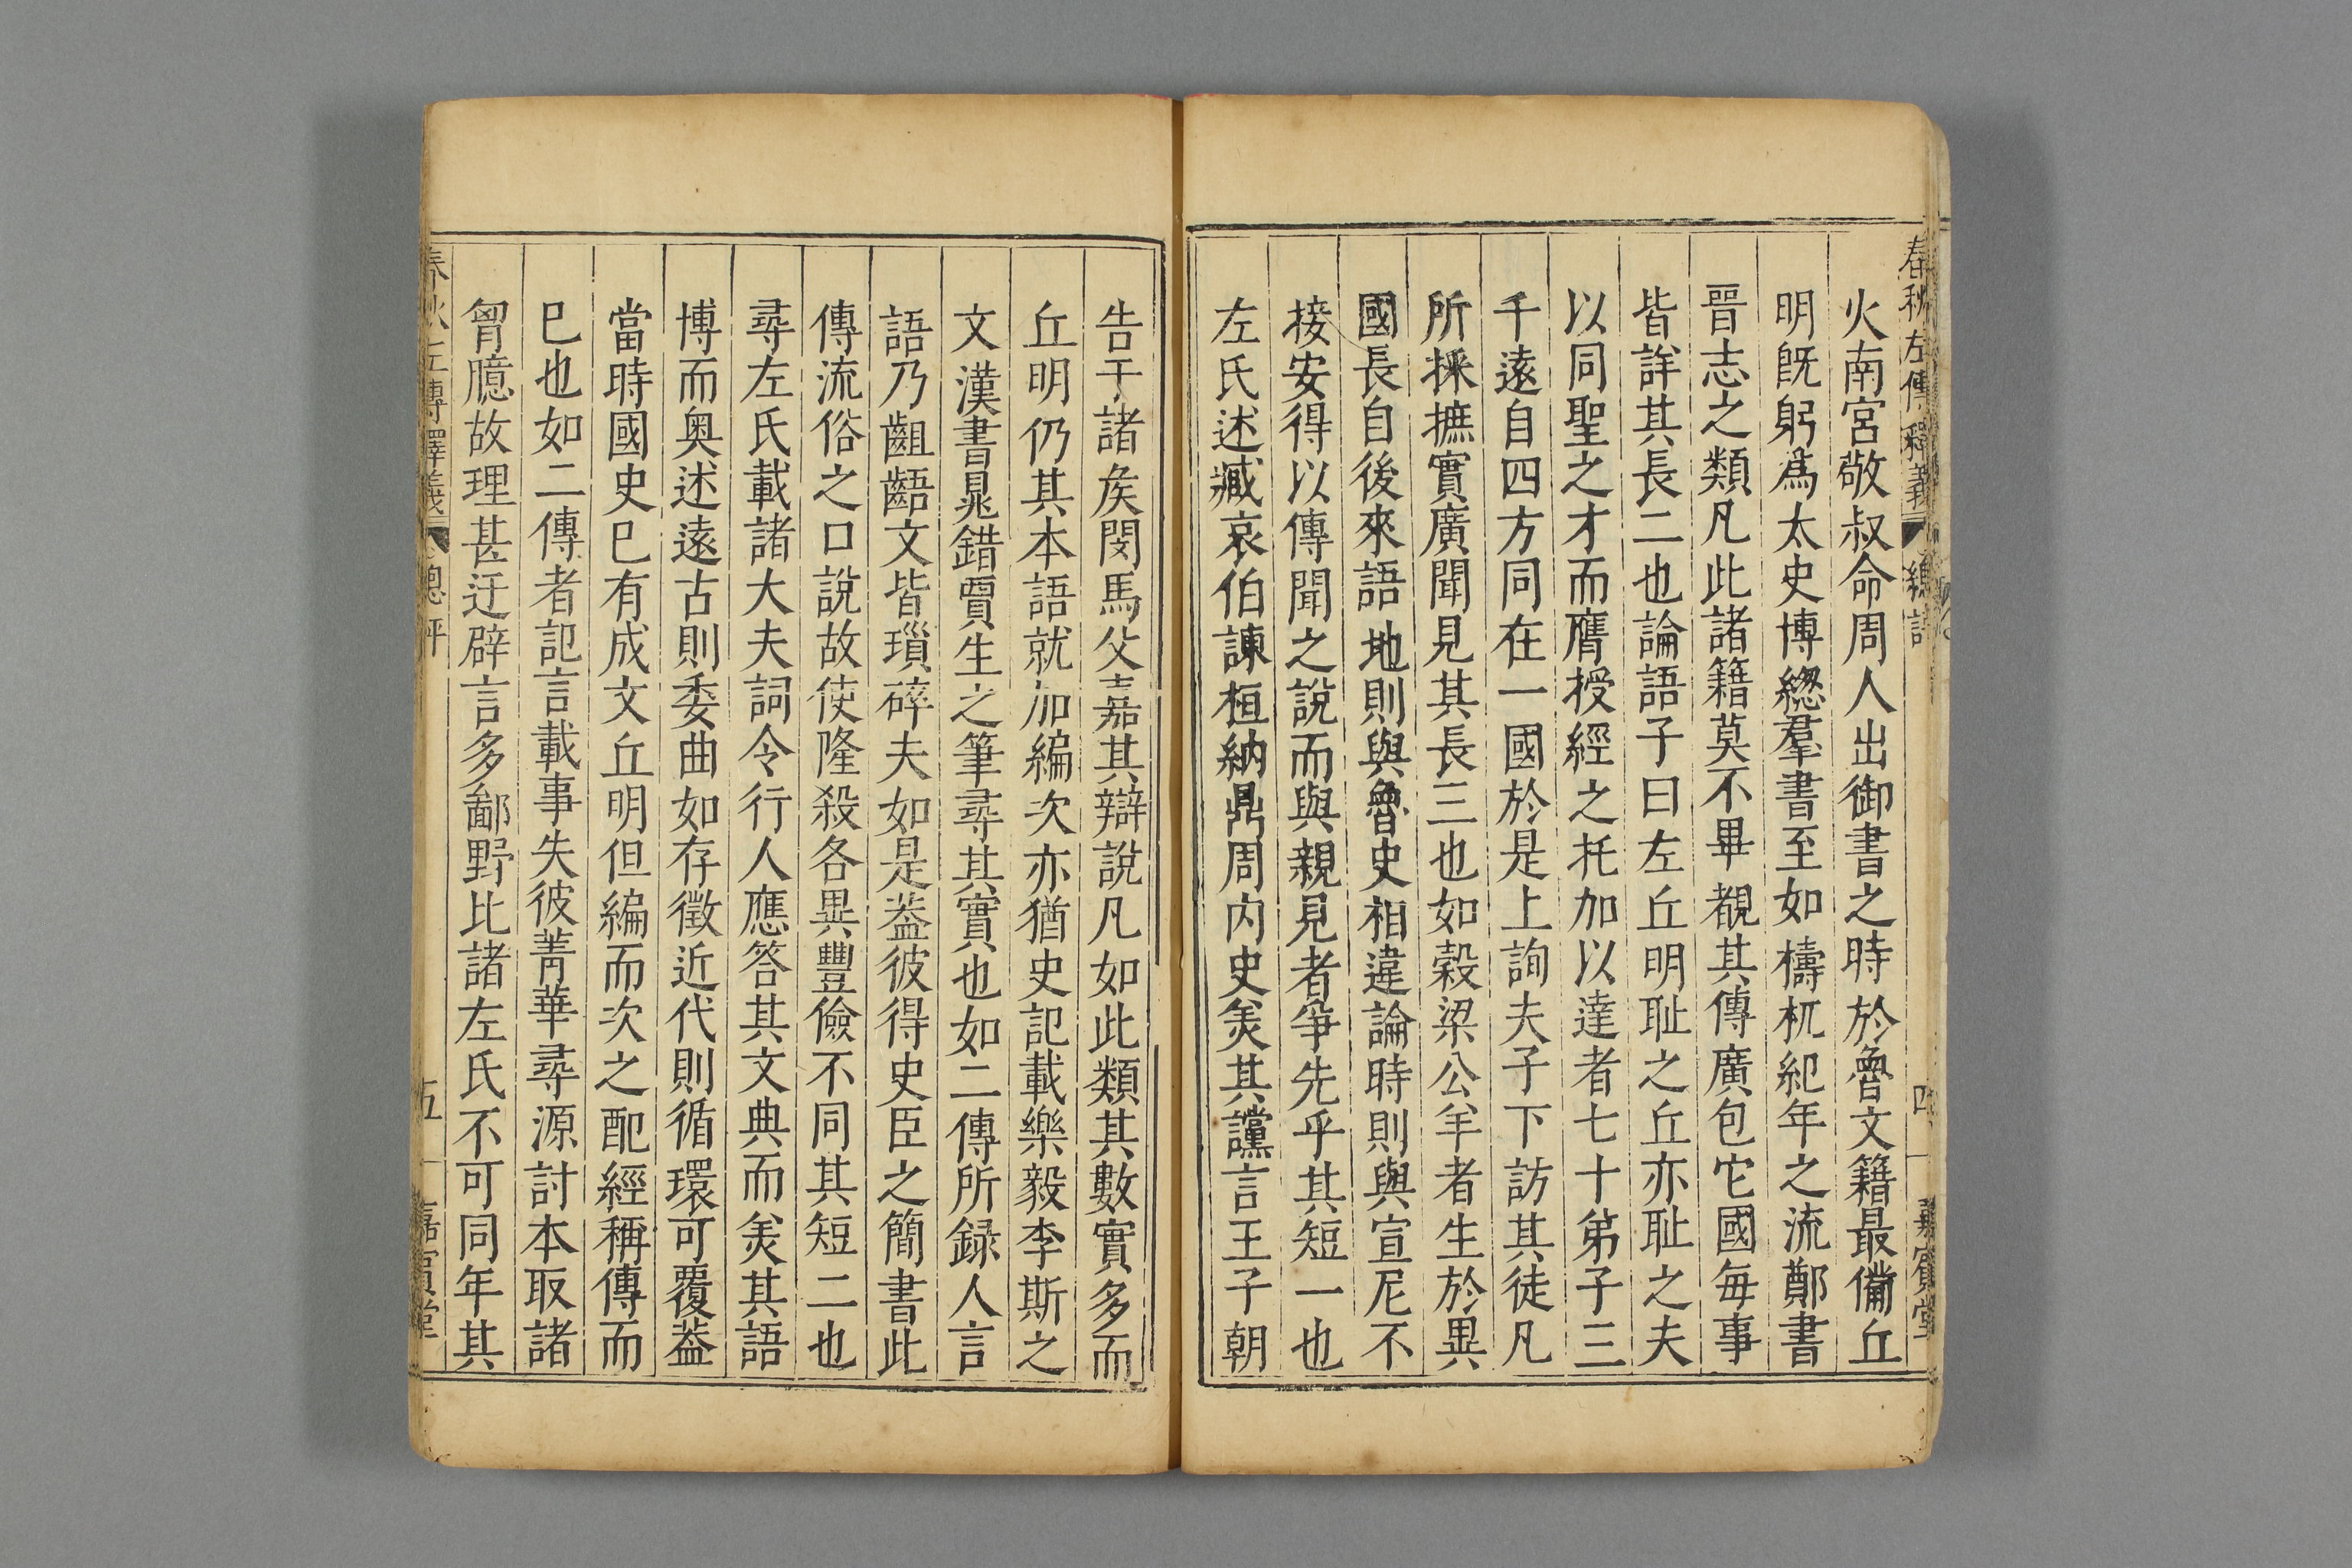 春秋左傳釋義 總評 四 嘉賓堂
火南宮敬叔命周人出御書之時於魯文籍最備丘
明旣躬爲太史博緫羣書至如檮杌紀年之流鄭書
晉志之類凡此諸籍莫不畢覩其傳廣包它國每事
皆詳其長二也論語子曰左丘明耻之丘亦耻之夫
以同聖之才而膺授經之托加以達者七十弟子三
千遠自四方同在一國於是上詢夫子下訪其徒凡
所採摭實廣聞見其長三也如榖梁公羊者生於異
國長自後來語地則與魯史相違論時則與宣尼不
接安得以傳聞之說而與親見者爭先乎其短一也
左氏述臧哀伯諫桓納鼎周内史羙其讜言王子朝
告于諸矦閔馬父嘉其辯說凡如此類其數實多而
丘明仍其本語就加編次亦猶史記載樂毅李斯之
文漢書晁錯賈生之筆尋其實也如二傳所録人言
語乃齟齬文皆瑣碎夫如是葢彼得史臣之簡書此
傳流俗之口說故使隆殺各異豐儉不同其短二也
尋左氏載諸大夫詞令行人應答其文典而羙其語
博而奥述遠古則委曲如存徵近代則循環可覆葢
當時國史已有成文丘明但編而次之配經稱傳而
已也如二傳者記言載事失彼菁華尋源討本取諸
胷臆故理甚迂辟言多鄙野比諸左氏不可同年其
春秋左傳釋義 總評 五 嘉賓堂